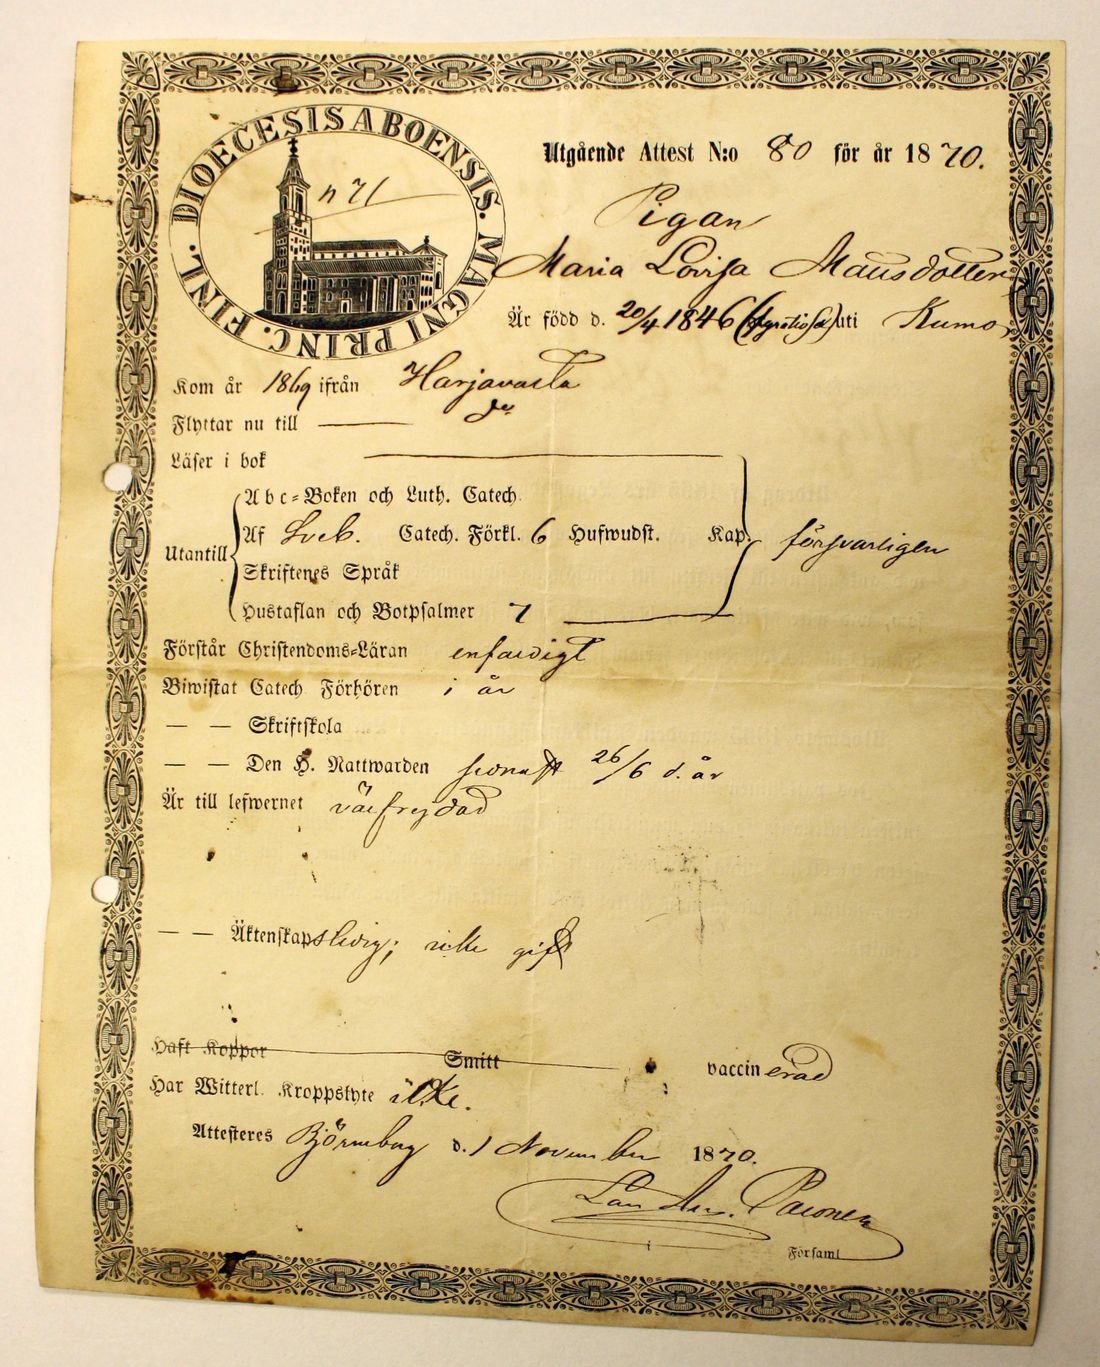 DIOECESIS ABOENSIS. MAGNI PRINC. FINL.
n 71
Utgående Attest N:o 80 för år 1870.
Pigan
Maria Lovisa Mausdotter
Är född d. 20/4 1846 uti Kumo
Kom år 1869 ifrån Harjavalta
Flyttar nu till — do
Läser i bok
Abc-Boken och Luth. Catech.
Utantill Af Sveb. Catech. Förkl. 6 Hufwudst. Kap. försvarligen
Skriftenes Språk
Hustaflan och Botpsalmer 7
Förstår Christendoms-Läran enfaldigt
Biwistat Catech. Förhören i år
— — Skriftskola
— — Den H. Nattwarden sednast 26/6 d. år
Är till lefwernet välfrejdad
— — Äktenskap ledig; icke gift
Haft Koppor Smitt vaccinerad
Har Witterl. Kroppslyte icke.
Attesteres Björneborg d. 1 November 1870.
Församl